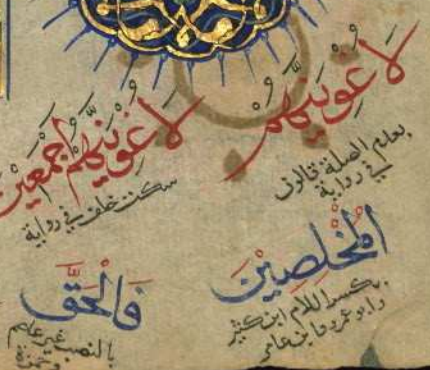 لأغوينهم
بعدم الصلة قالون
في رواية
لأغوينهم أجمعين
سكت خلف في رواية
المخلصين
بكسر اللام ابن كثير
وابو عمرو وابن عامر
فالحق
بالنصب غير عاصم
وحمزة